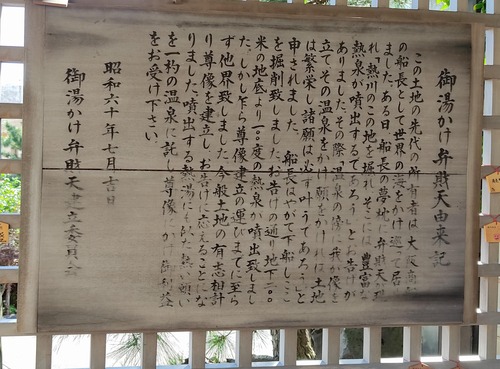 御湯かけ弁財天由来記
この土地の先代の所有者は大阪商
の船長として世界の海をかけ巡って居
ました。ある日船長の夢地に弁財天が現
れ、熱川のこの地を掘れ、そこには豊富な
熱泉が噴出するであろうとお告げが
ありました。その際温泉の傍に我が像を
立て、その温泉をかけ願をかければ土地
は繁栄し諸願は必ず叶うであろうと
申されました。船長はやがて下船しここ
を掘削致しました。お告げの通り地下二〇〇
米の地底より一〇〇度の熱泉が噴出致しまし
た。しかし乍ら尊像建立の運びまでに至ら
ず他界致しました。今般土地の有志相計
り尊像を建立し、お告げに応えることにな
りました。噴出する熱湯にも似た熱い願い
を一杓の温泉に託し尊像にかけ御利益
をお受け下さい。
昭和六十年七月吉日
御湯かけ弁財天建立委員会